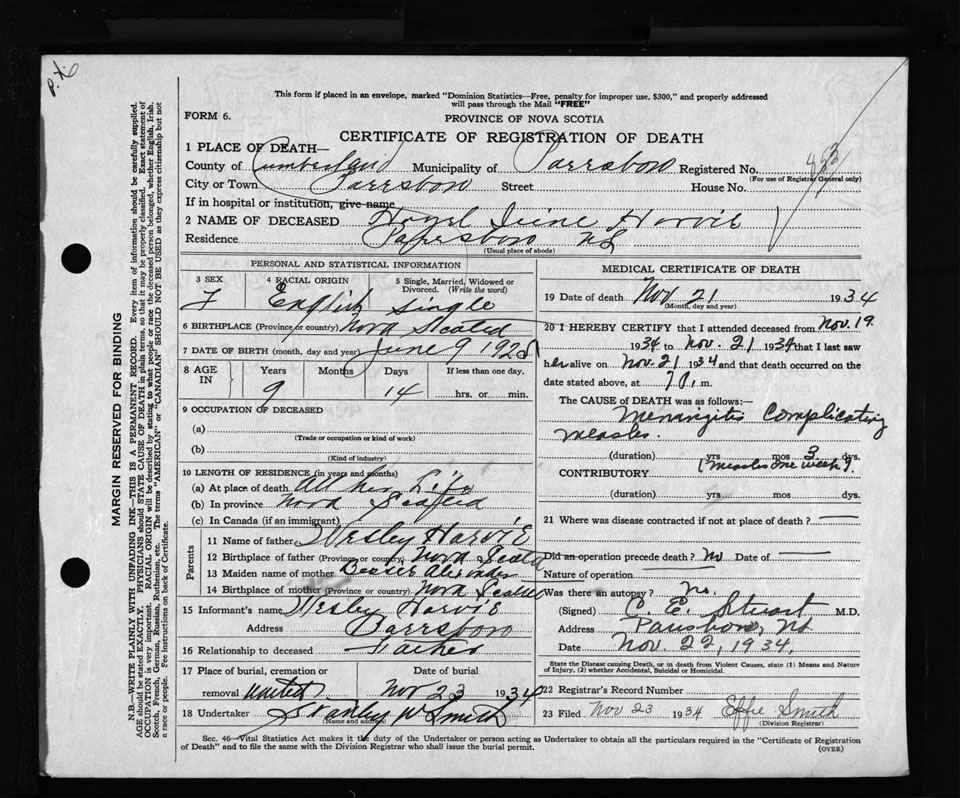 P.X.
This form if placed in an envelope, marked "Dominion Statistics—Free, penalty for improper use, $300," and properly addressed
will pass through the Mail "FREE"
FORM 6.
PROVINCE OF NOVA SCOTIA
CERTIFICATE OF REGISTRATION OF DEATH
1 PLACE OF DEATH—
County of Cumberland Municipality of Parrsboro Registered No.
(For use of Registrar General only)
City or Town Parrsboro Street House No.
If in hospital or institution, give name
2 NAME OF DECEASED Hazel Irine Harvie
Residence Parrsboro N.S.
(Usual place of abode)
PERSONAL AND STATISTICAL INFORMATION
3 SEX 4 RACIAL ORIGIN 5 Single, Married, Widowed or Divorced. (Write the word)
F English Single
6 BIRTHPLACE (Province or country) Nova Scotia
7 DATE OF BIRTH (month, day and year) June 9 1925
8 AGE IN Years Months Days If less than one day,
9 14 hrs. or min.
9 OCCUPATION OF DECEASED
(a)
(Trade or occupation or kind of work)
(b)
(Kind of industry)
10 LENGTH OF RESIDENCE (in years and months)
(a) At place of death All her Life
(b) In province Nova Scotia
(c) In Canada (if an immigrant)
Parents
11 Name of father Wesley Harvie
12 Birthplace of father (Province or country) Nova Scotia
13 Maiden name of mother Bessie Alexander
14 Birthplace of mother (Province or country) Nova Scotia
15 Informant's name Wesley Harvie
Address Parrsboro
16 Relationship to deceased Father
17 Place of burial, cremation or Date of burial
removal United Nov 23 1934
18 Undertaker Stanley W Smith
(Name and address)
MEDICAL CERTIFICATE OF DEATH
19 Date of death Nov 21 1934
(Month, day and year)
20 I HEREBY CERTIFY that I attended deceased from Nov. 19.
1934 to Nov. 21 1934 that I last saw
her alive on Nov. 21 1934 and that death occurred on the
date stated above, at 7 P. m.
The CAUSE of DEATH was as follows:—
Meningitis Complicating
measles.
(duration) yrs mos 3 dys.
CONTRIBUTORY (measles one week).
(duration) yrs mos dys.
21 Where was disease contracted if not at place of death? —
Did an operation precede death? no Date of —
Nature of operation —
Was there an autopsy? no.
(Signed) C. E. Stuart M.D.
Address Parrsboro, NS
Date Nov. 22, 1934.
State the Disease causing Death, or in death from Violent Causes, state (1) Means and Nature
of Injury, (2) whether Accidental, Suicidal or Homicidal.
22 Registrar's Record Number
23 Filed Nov 23 1934 Effie Smith
(Division Registrar)
Sec. 46—Vital Statistics Act makes it the duty of the Undertaker or person acting as Undertaker to obtain all the particulars required in the "Certificate of Registration
of Death" and to file the same with the Division Registrar who shall issue the burial permit.
(OVER)
MARGIN RESERVED FOR BINDING
N.B.—WRITE PLAINLY WITH UNFADING INK—THIS IS A PERMANENT RECORD. Every item of information should be carefully supplied.
AGE should be stated EXACTLY. PHYSICIANS should STATE CAUSE OF DEATH in plain terms, so that it may be properly classified. Exact statement of
OCCUPATION is very important. RACIAL ORIGIN will be described by stating to what people or race the deceased person belonged, whether English, Irish,
Scotch, French, German, Russian, Ruthenian, etc. The terms "AMERICAN" or "CANADIAN" SHOULD NOT BE USED as they express citizenship but not
a race or people. Fee instructions on back of Certificate.